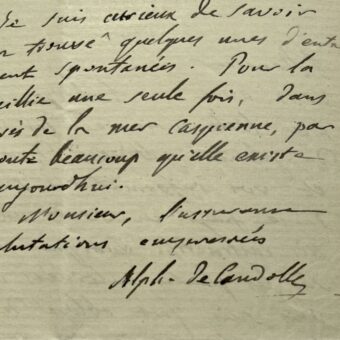 Je suis curieux de savoir
trouvé quelques unes d'entr
ent spontanées. Pour la
eillie une seule fois, dans
de la mer caspienne, par
oute beaucoup qu'elle existe
aujourdhui.
Monsieur, l'assurance
lutations empressées
Alph. DeCandolle